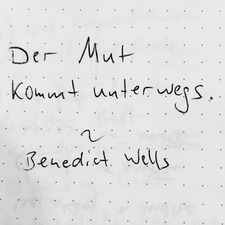 Der Mut
kommt unterwegs.
~
Benedict Wells